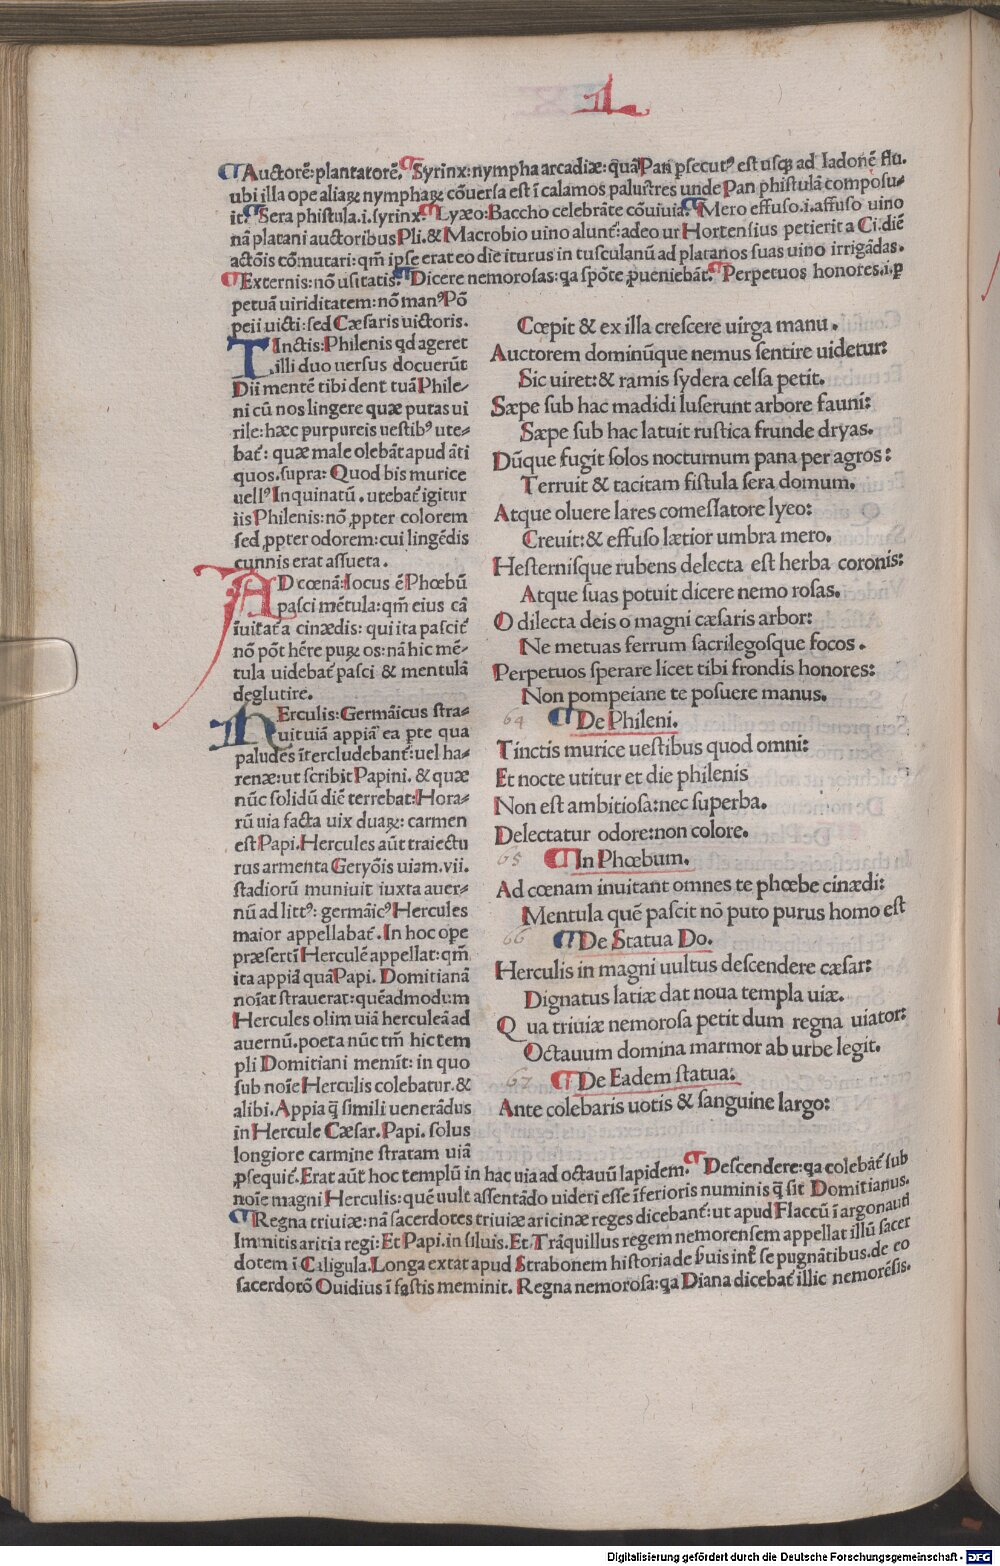 L
Auctorē:plantatorē. Syrinx:nympha arcadiæ:quā Pan ꝑsecutꝰ est usqꝫ ad ladonē flu.
ubi illa ope aliaꝝ nymphaꝝ cōuersa est ī calamos palustres unde Pan phistulā composu-
it. Sera phistula.i.syrinx. Lyæo:Baccho celebrāte cōuiuia. Mero effuso.i.affuso uino
nā platani auctoribus Pli.& Macrobio uino alunt̄:adeo ut Hortensius petierit a Ci.diē
actōis cōmutari:qm̄ ipse erat eo die iturus in tusculanū ad platanos suas uino irrigādas.
Externis:nō usitatis. Dicere nemorosas:qa spōte ꝓueniebāt. Perpetuos honores.i.ꝑ
petuā uiriditatem:nō manꝰ Pō
peii uicti:sed Cæsaris uictoris.
TInctis:Philenis qd ageret
illi duo uersus docuerūt
Dii mentē tibi dent tuā Phile-
ni cū nos lingere quæ putas ui
rile:hæc purpureis uestibꝰ ute-
bat̄: quæ male olebāt apud āti
quos.supra: Quod bis murice
uellꝰ Inquinatū. utebat̄ igitur
iis Philenis:nō ꝓpter colorem
sed ꝓpter odorem:cui lingēdis
cunnis erat assueta.
AD cœnā:Iocus ē Phœbū
pasci mētula:qm̄ eius cā
īuitat̄ a cinædis: qui ita pascit̄
nō pōt hēre puꝝ os:nā hic mē-
tula uidebat̄ pasci & mentulā
deglutire.
HErculis:Germāicus stra-
uit uiā appiā ea ꝑte qua
paludes īterclude bant̄:uel ha-
renæ:ut scribit Papini. & quæ
nūc solidū diē terrebat:Hora-
rū uia facta uix duaꝝ: carmen
est Papi. Hercules aūt traiectu
rus armenta Geryōis uiam.vii.
stadiorū muniuit iuxta auer-
nū ad littꝰ: germāicꝰ Hercules
maior appellabat̄. In hoc ope
præsertī Herculē appellat:qm̄
ita appiā quā Papi. Domitianā
noīat strauerat:quēadmodum
Hercules olim uiā herculeā ad
auernū.poeta nūc tm̄ hic tem
pli Domitiani memīt: in quo
sub noīe Herculis colebatur.&
alibi.Appia q̄ simili uenerādus
in Hercule Cæsar. Papi. solus
longiore carmine stratam uiā
ꝓsequit̄. Erat aūt hoc templū in hac uia ad octauū lapidem. Descendere:qa colebāt̄ sub
noīe magni Herculis:quē uult assentādo uideri esse īferioris numinis q̄ sit Domitianus.
Regna triuiæ:nā sacerdotes triuiæ aricinæ reges dicebant̄:ut apud Flaccū ī argonauti
Immitis aritia regi:Et Papi.in siluis.Et Trāquillus regem nemorensem appellat illū sacer
dotem ī Caligula.Longa extat apud Strabonem historia de seruis int̄ se pugnātibus.de eo
sacerdoto Ouidius ī fastis meminit. Regna nemorosa:qa Diana dicebat̄ illic nemorēsis.
Cœpit & ex illa crescere uirga manu.
Auctorem dominūque nemus sentire uidetur:
Sic uiret:& ramis sydera celsa petit.
Sæpe sub hac madidi luserunt arbore fauni:
Sæpe sub hac latuit rustica frunde dryas.
Dūque fugit solos nocturnum pana per agros:
Terruit & tacitam fistula sera domum.
Atque oluere lares comessatore lyeo:
Creuit:& effuso lætior umbra mero.
Hesternisque rubens delecta est herba coronis:
Atque suas potuit dicere nemo rosas.
O dilecta deis o magni cæsaris arbor:
Ne metuas ferrum sacrilegosque focos.
Perpetuos sperare licet tibi frondis honores:
Non pompeiane te posuere manus.
64 De Phileni.
Tinctis murice uestibus quod omni:
Et nocte utitur et die philenis
Non est ambitiosa:nec superba.
Delectatur odore:non colore.
65 In Phœbum.
Ad cœnam inuitant omnes te phœbe cinædi:
Mentula quē pascit nō puto purus homo est
66 De Statua Do.
Herculis in magni uultus descendere cæsar:
Dignatus latiæ dat noua templa uiæ.
Qua triuiæ nemorosa petit dum regna uiator:
Octauum domina marmor ab urbe legit.
67 De Eadem statua:
Ante colebaris uotis & sanguine largo:
Digitalisierung gefördert durch die Deutsche Forschungsgemeinschaft - DFG